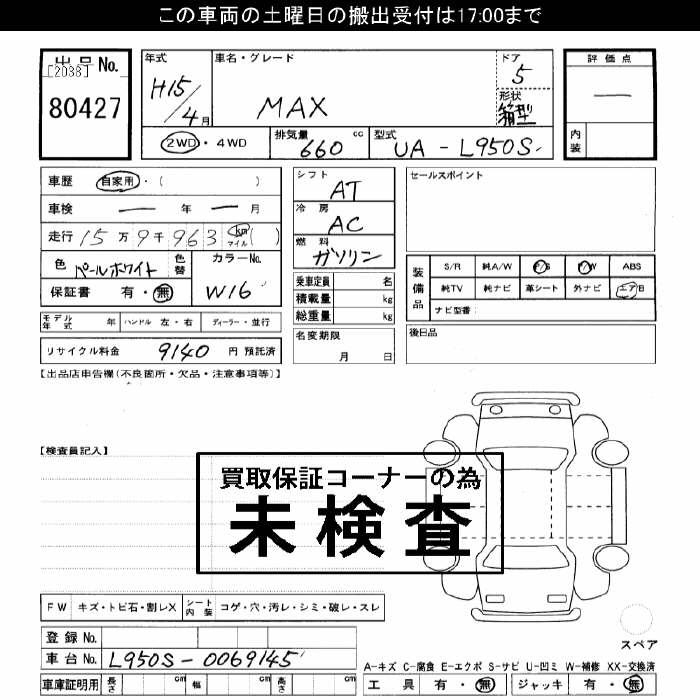 この車両の土曜日の搬出受付は17:00まで
出品No.
[2038]
80427
年式
H15/4月
車名・グレード
MAX
ドア
5
形状
箱型
評価点
―
内装
2WD・4WD
排気量
660 cc
型式
UA-L950S
車歴 自家用・( )
車検 ― 年 ― 月
走行 15万9千963 km マイル ( )
色 パールホワイト 色替
カラーNo.
W16
保証書 有・無
シフト
AT
冷房
AC
燃料
ガソリン
乗車定員 名
積載量 kg
総重量 kg
名変期限
月 日
セールスポイント
装備品
S/R 純A/W P/S P/W ABS
純TV 純ナビ 革シート 外ナビ エアB
ナビ型番:
後日品
モデル年式 年 ハンドル 左・右 ディーラー・並行
リサイクル料金 9140 円 預託済
【出品店申告欄(不良箇所・欠品・注意事項等)】
【検査員記入】
買取保証コーナーの為
未検査
FW キズ・トビ石・割レX シート内装 コゲ・穴・汚レ・シミ・破レ・スレ
登録No.
車台No. L950S-0069145
車庫証明用 長さ cm 幅 cm 高さ cm
スペア
A-キズ C-腐食 E-エクボ S-サビ U-凹ミ W-補修 XX-交換済
工具 有・無 ジャッキ 有・無